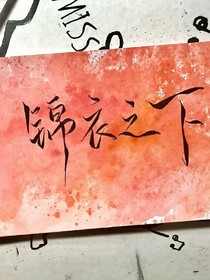 MISS
锦衣之下